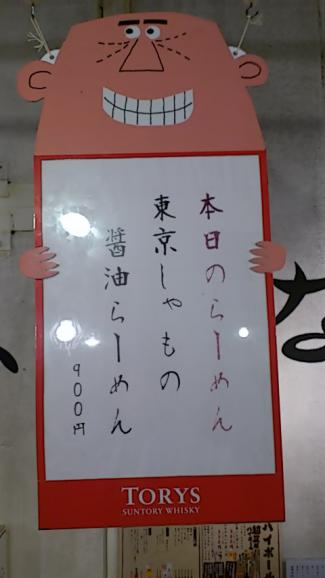 本日のらーめん
東京しゃもの
醤油らーめん
900円
TORYS
SUNTORY WHISKY
ハイボール